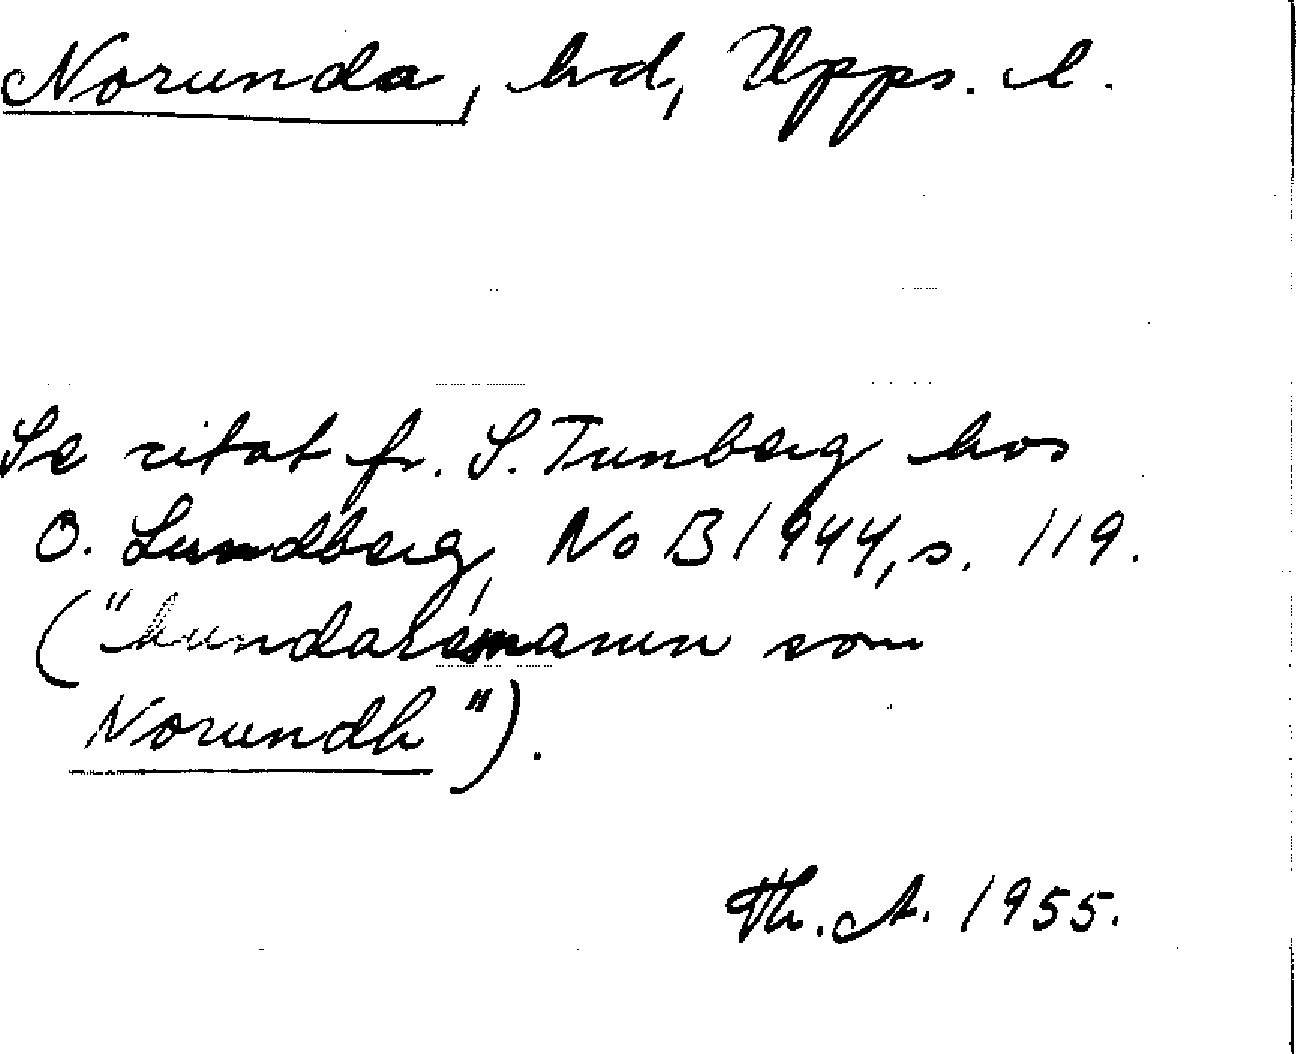 Norunda, hd, Upps. l.
Se citat fr. S. Tunberg hos
O. Lundberg, NoB 1944, s. 119.
("hundaresmann som
Norundh").
Th. A. 1955.